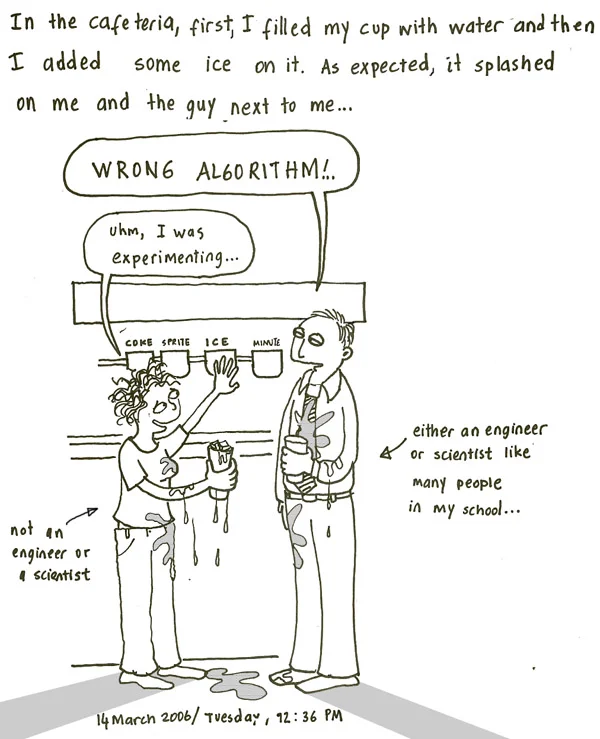 In the cafeteria, first, I filled my cup with water and then
I added some ice on it. As expected, it splashed
on me and the guy next to me...
WRONG ALGORITHM!..
Uhm, I was
experimenting...
COKE SPRITE ICE MINUTE
either an engineer
or scientist like
many people
in my school...
not an
engineer or
a scientist
14 March 2006/ Tuesday, 12:36 PM